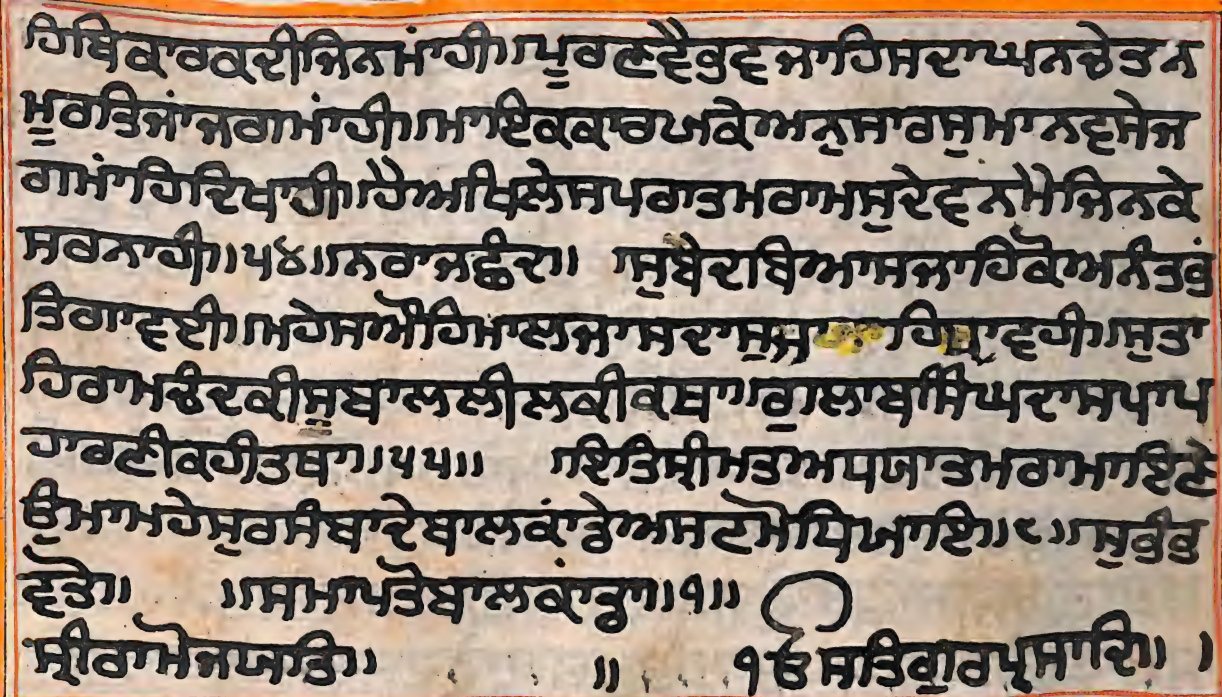 ਹਿਬਿਕਾਰਕਦੀਜਿਨਮਾਂਹੀ॥ਪੂਰਣਵੈਭਵਜਾਹਿਸਦਾਘਨਚੇਤਨ
ਮੂਰਤਿਜਾਂਜਗਮਾਂਹੀ॥ਮਾਇਕਕਾਰਯਕੇਅਨੁਸਾਰਸੁਮਾਨਵਸੇਜ
ਗਮਾਂਹਿਦਿਖਾਹੀ॥ਹੈਅਖਿਲੇਸਪਰਾਤਮਰਾਮਸੁਦੇਵਨਮੈਜਿਨਕੇ
ਸਰਨਾਹੀ॥੫੪॥ਨਰਾਜਛੰਦ॥ ॥ਸੁਬੇਦਬਿਆਸਜਾਹਿਕੋਅਨੰਤਭੁੰ
ਤਿਗਾਵਈ॥ਮਹੇਸਔਹਿਮਾਲਜਾਸਦਾਸੁ ਹਿ ਵਹੀ॥ਸੁਤਾ
ਹਿਰਾਮਚੰਦਕੀਸੁਬਾਲਲੀਲਕੀਕਥਾ॥ਗੁਲਾਬਸਿੰਘਦਾਸਪਾਪ
ਹਾਰਣੀਕਹੀਤਥਾ॥੫੫॥ ॥ਇਤਿਸ੍ਰੀਮਤਅਧਯਾਤਮਰਾਮਾਇਣੇ
ਉਮਾਮਹੇਸੁਰਸੰਬਾਦੇਬਾਲਕਾਂਡੇਅਸਟਮੋਧਿਯਾਇ॥੮॥ਸੁਭੰਭ
ਵਤੋ॥ ॥ਸਮਾਪਤੋਬਾਲਕਾਂਡਾ॥੧॥
ਸ੍ਰੀਰਾਮੋਜਯਤਿ॥ ॥ ੧ਓਸਤਿਗੁਰਪ੍ਰਸਾਦਿ॥ ।